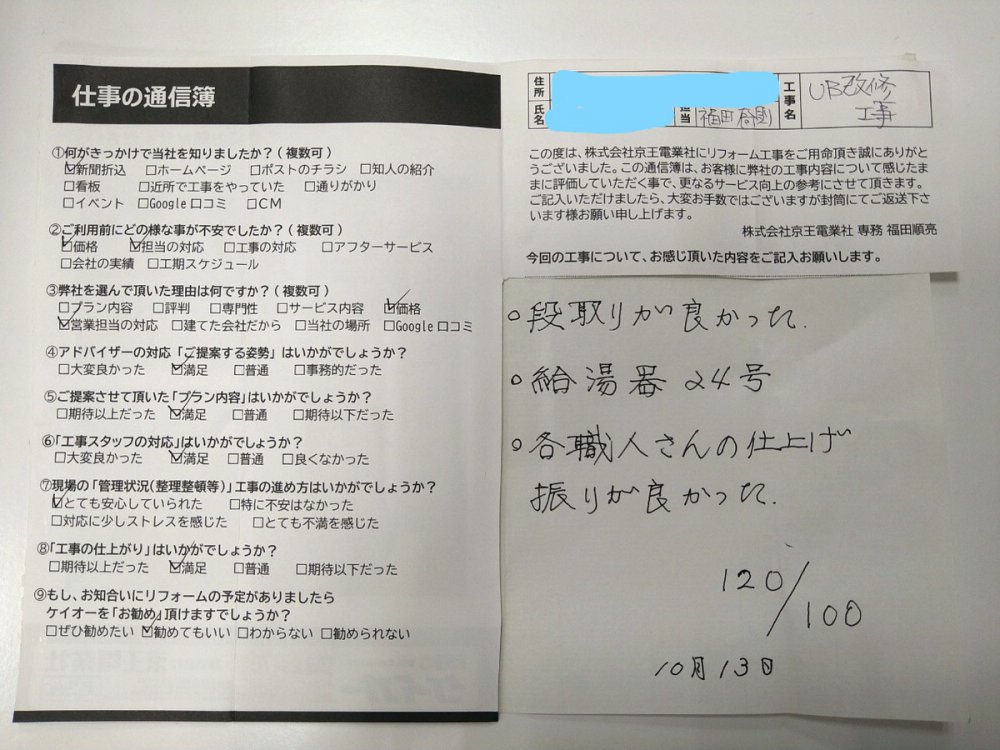 仕事の通信簿
①何がきっかけで当社を知りましたか？（複数可）
☑新聞折込 □ホームページ □ポストのチラシ □知人の紹介
□看板 □近所で工事をやっていた □通りがかり
□イベント □Google口コミ □CM
②ご利用前にどの様な事が不安でしたか？（複数可）
☑価格 ☑担当の対応 □工事の対応 □アフターサービス
□会社の実績 □工期スケジュール
③弊社を選んで頂いた理由は何ですか？（複数可）
□プラン内容 □評判 □専門性 □サービス内容 ☑価格
☑営業担当の対応 □建てた会社だから □当社の場所 □Google口コミ
④アドバイザーの対応「ご提案する姿勢」はいかがでしょうか？
□大変良かった ☑満足 □普通 □事務的だった
⑤ご提案させて頂いた「プラン内容」はいかがでしょうか？
□期待以上だった ☑満足 □普通 □期待以下だった
⑥「工事スタッフの対応」はいかがでしょうか？
□大変良かった ☑満足 □普通 □良くなかった
⑦現場の「管理状況(整理整頓等)」工事の進め方はいかがでしょうか？
☑とても安心していられた □特に不安はなかった
□対応に少しストレスを感じた □とても不満を感じた
⑧「工事の仕上がり」はいかがでしょうか？
□期待以上だった ☑満足 □普通 □期待以下だった
⑨もし、お知合いにリフォームの予定がありましたら
ケイオーを「お勧め」頂けますでしょうか？
□ぜひ勧めたい ☑勧めてもいい □わからない □勧められない
住所
氏名
担当 福田
工事名 UB改修工事
この度は、株式会社京王電業社にリフォーム工事をご用命頂き誠にありがと
うございました。この通信簿は、お客様に弊社の工事内容について感じたま
まに評価していただく事で、更なるサービス向上の参考にさせて頂きます。
ご記入いただけましたら、大変お手数ではございますが封筒にてご返送下さ
います様お願い申し上げます。
株式会社京王電業社 専務 福田順亮
今回の工事について、お感じ頂いた内容をご記入お願いします。
○段取りが良かった.
○給湯器24号
○各職人さんの仕上げ
振りが良かった.
120/100
10月13日